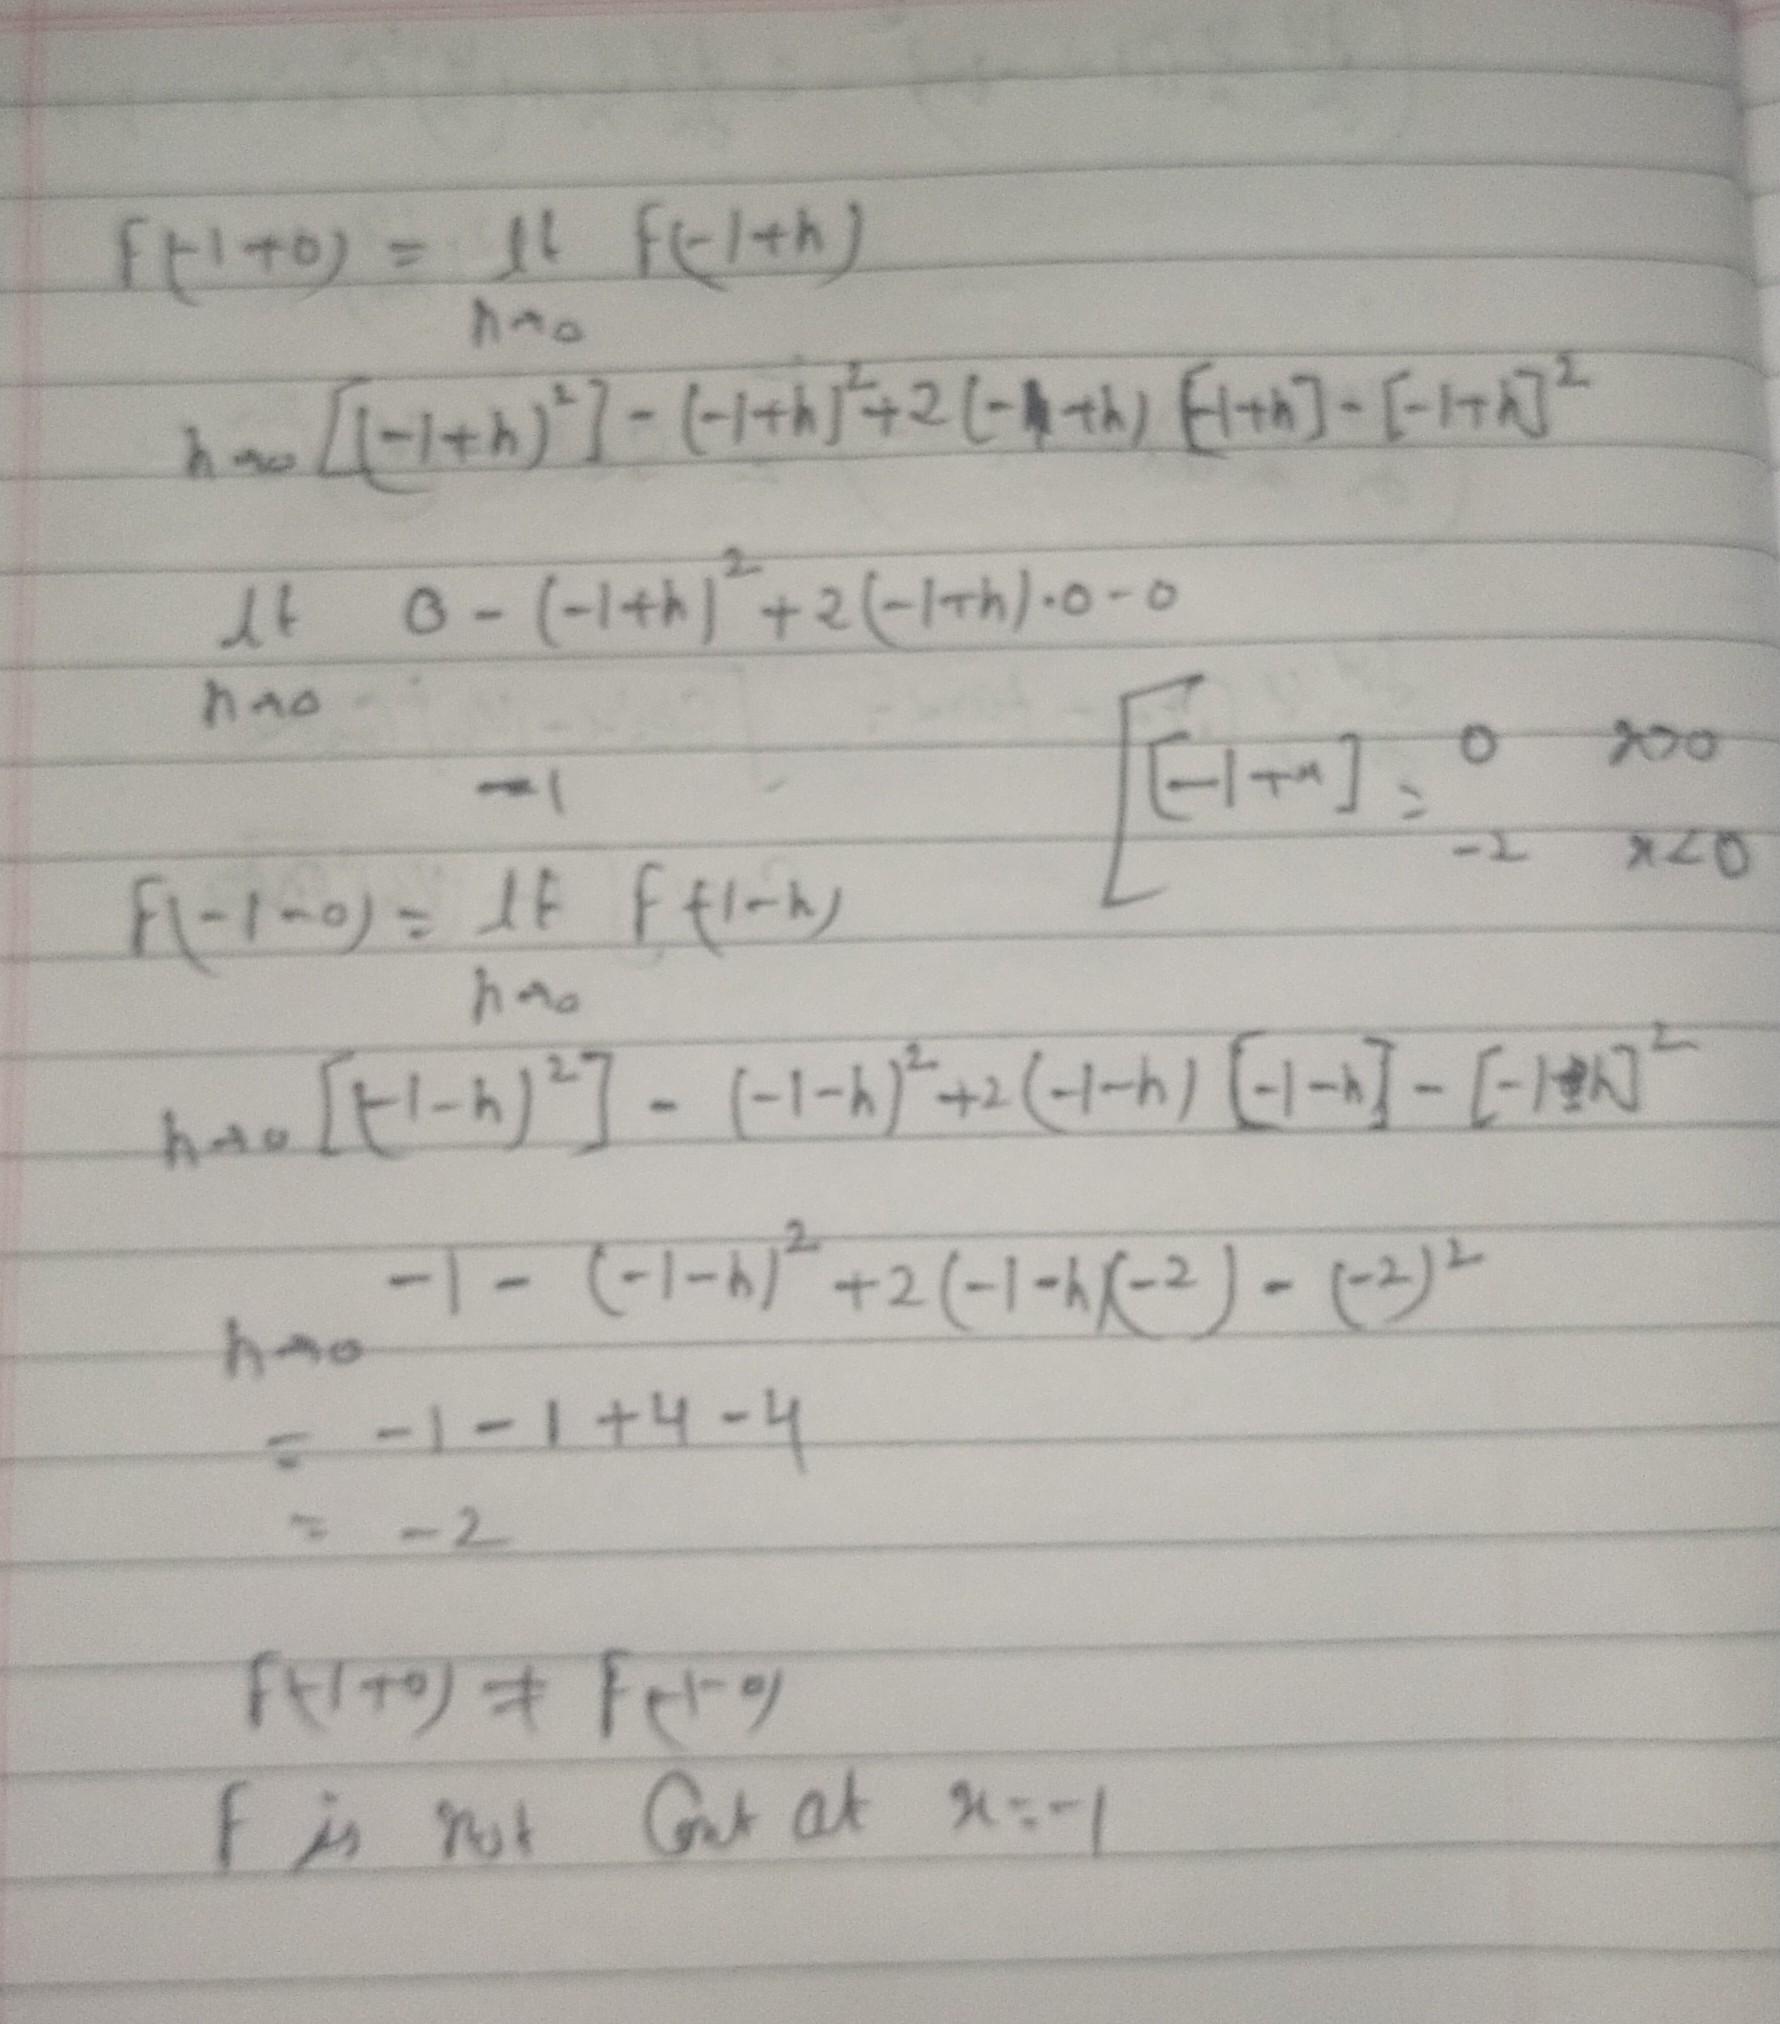 F(-1+0) = lt F(-1+h)
h→0
h→0 [(-1+h)²] - (-1+h)²+2(-1+h) [-1+h] - [-1+h]²
lt 0 - (-1+h)² +2(-1+h)·0-0
h→0
-1
[-1+x] = 0 x>0
-2 x<0
F(-1-0) = lt F(-1-h)
h→0
h→0 [(-1-h)²] - (-1-h)²+2(-1-h) [-1-h] - [-1-h]²
-1 - (-1-h)² +2(-1-h)(-2) - (-2)²
h→0
= -1-1+4-4
= -2
F(-1+0) ≠ F(-1-0)
F is not Cont at x=-1